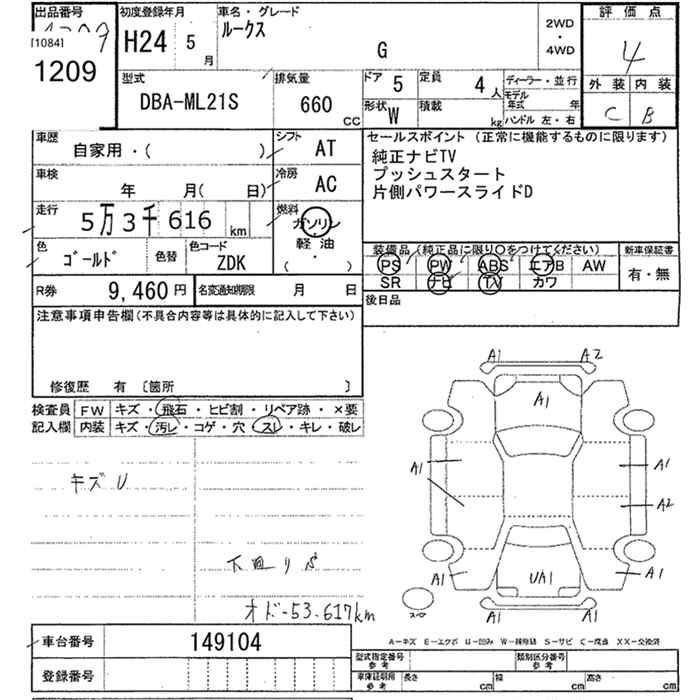 出品番号
[1084]
1209
初度登録年月
H24 5
月
車名・グレード
ルークス
G
2WD
・
4WD
評価点
4
外装 内装
C B
型式
DBA-ML21S
排気量
660
CC
ドア 5
定員 4 人
形状 W
積載 kg
ディーラー・並行
モデル
年式 年
ハンドル 左・右
車歴
自家用・( )
シフト
AT
車検
年 月( 日)
冷房
AC
走行
5万3千616 km
燃料
ガソリン
軽油
( ・ )
色
ゴールド
色替
色コード
ZDK
R券 9,460円
名変通知期限 月 日
セールスポイント (正常に機能するものに限ります)
純正ナビTV
プッシュスタート
片側パワースライドD
装備品(純正品に限り○をつけてください)
PS PW ABS エアB AW
SR ナビ TV カワ
新車保証書
有・無
後日品
注意事項申告欄(不具合内容等は具体的に記入して下さい)
修復歴 有 〔箇所 〕
検査員 FW キズ・飛石・ヒビ割・リペア跡・×要
記入欄 内装 キズ・汚レ・コゲ・穴・スレ・キレ・破レ
キズU
下廻りS
オドー53.617km
A1 A2
A1
A1 A1
A2
A1 UA1 A1
A1
スペア
A-キズ E-エクボ U-凹み W-補修跡 S-サビ C-腐蝕 XX-交換済
車台番号 149104
登録番号
型式指定番号
参考
類別区分番号
参考
車庫証明用
参考
長さ cm
幅 cm
高さ cm